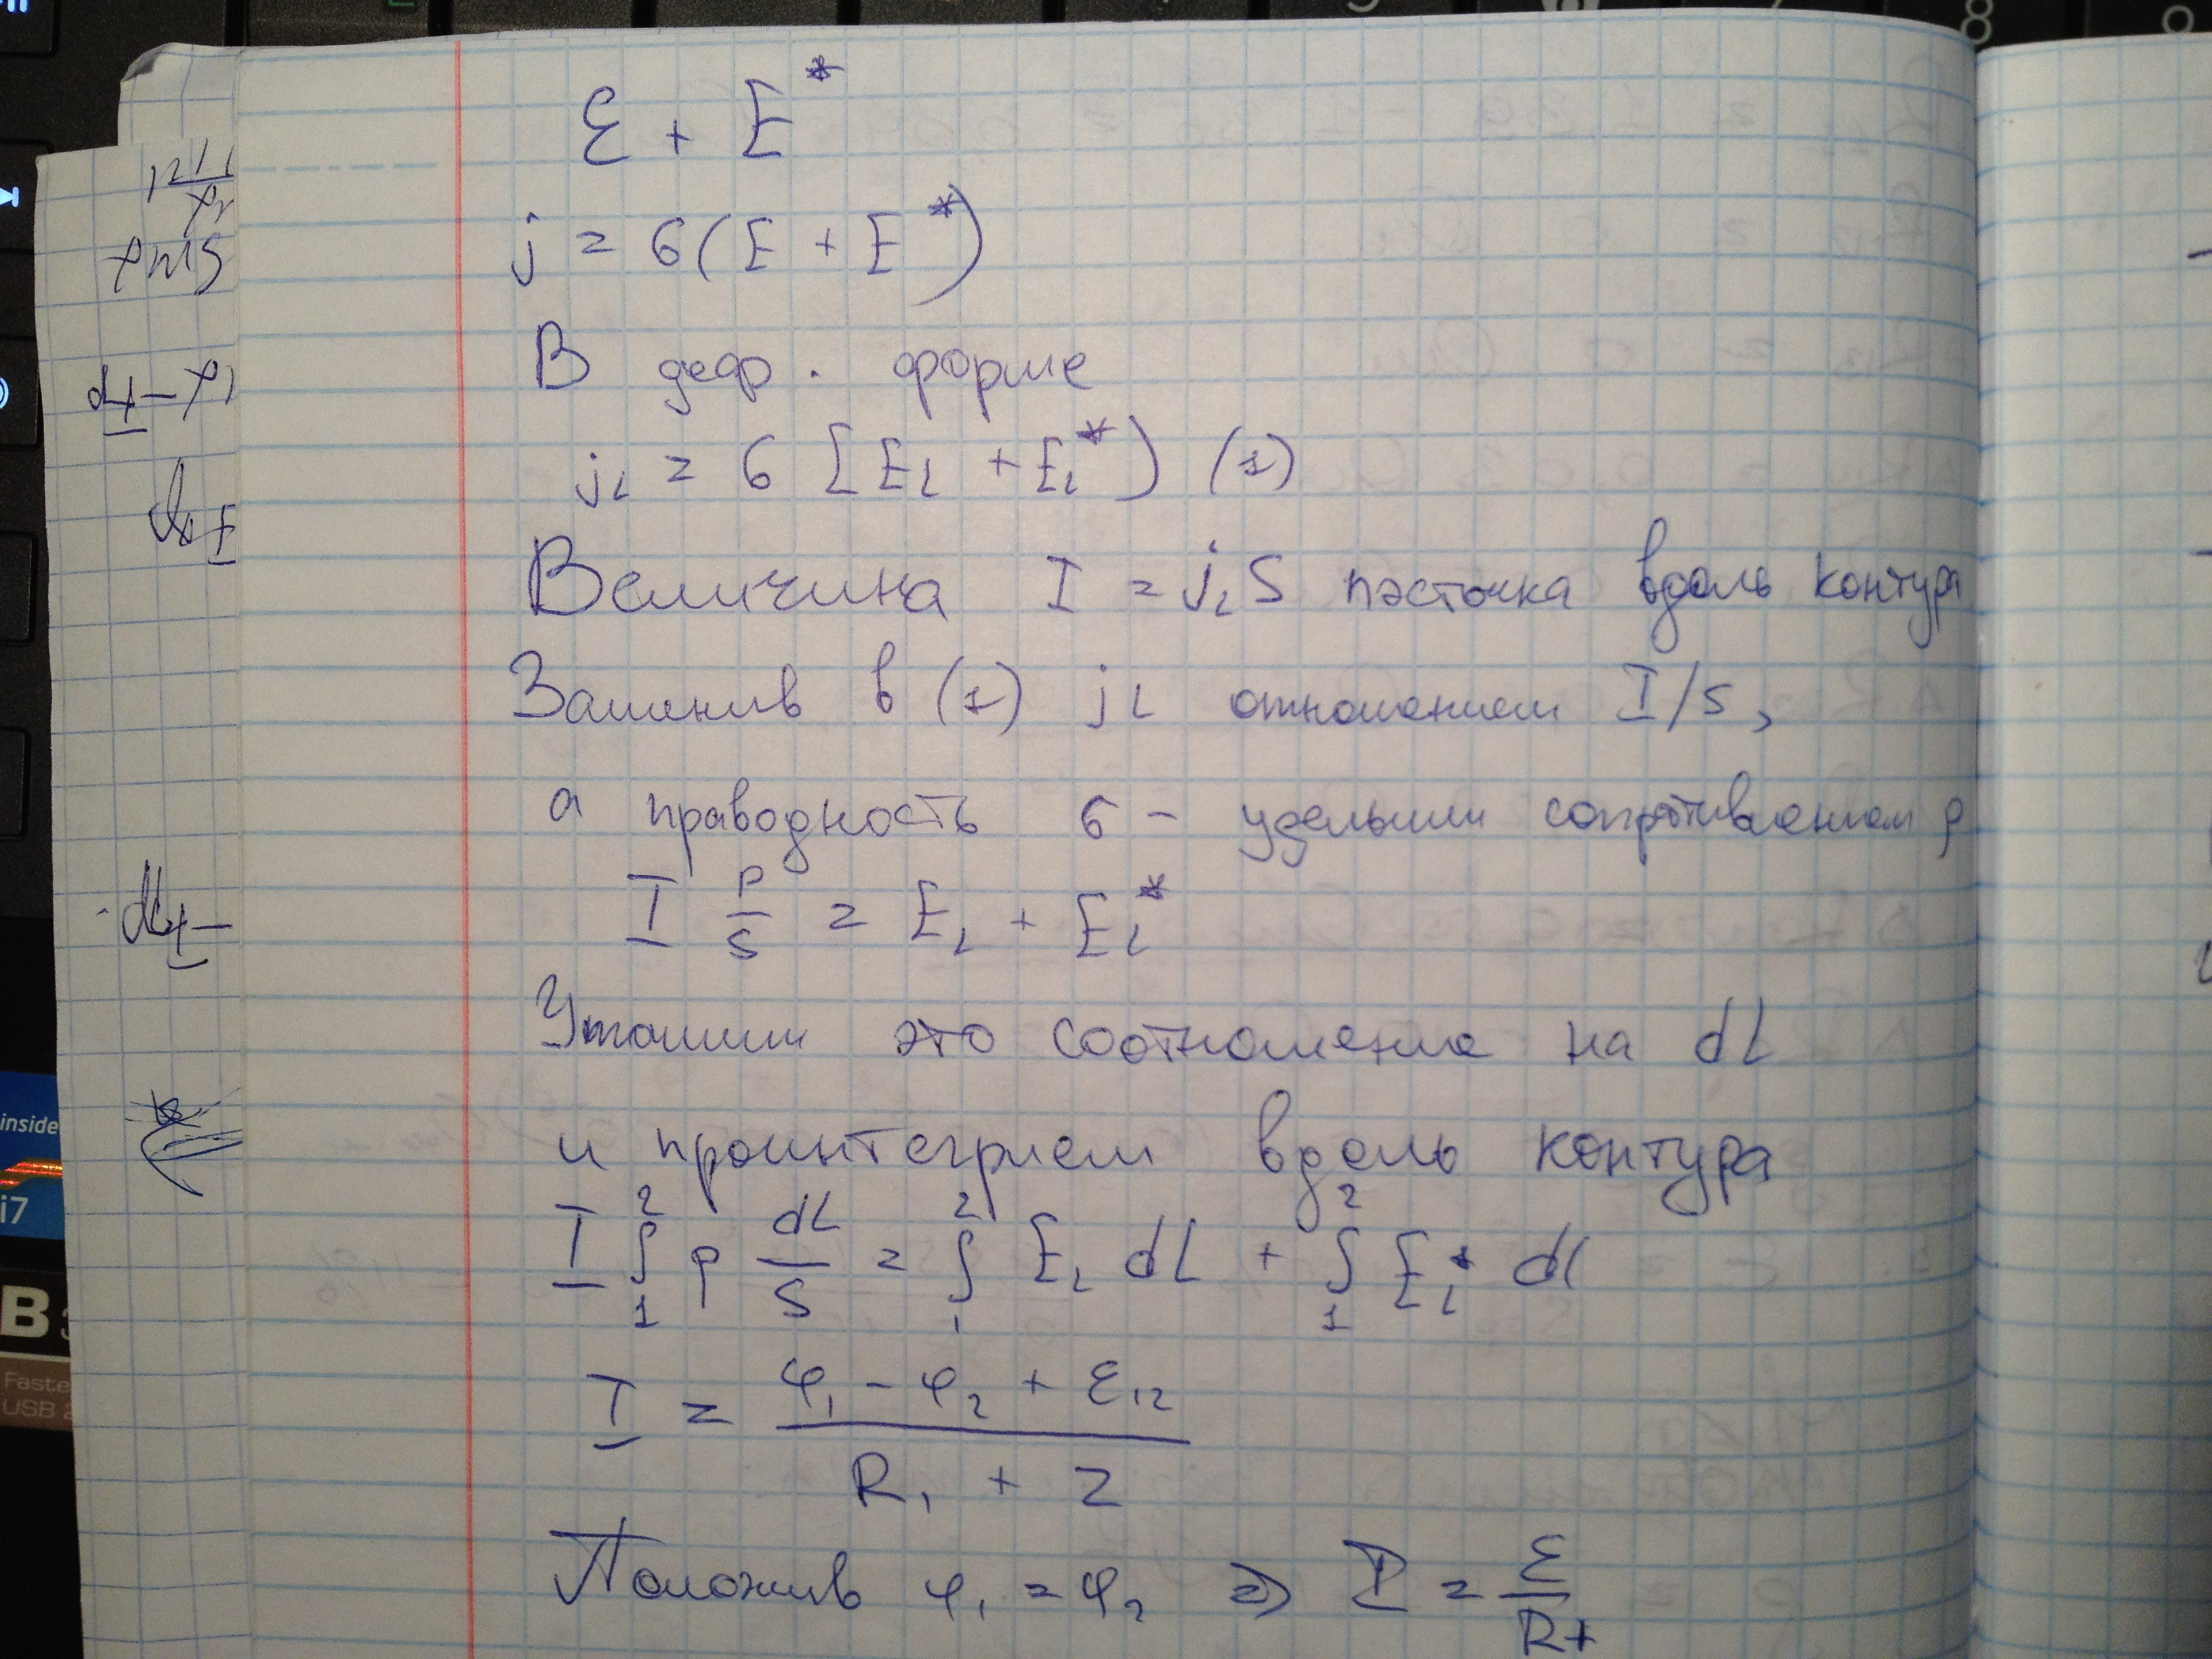 ε + E*
j = б(E + E*)
В деф. форме
jL = б [EL + EL*) (1)
Величина I = jL S постоянна вдоль контура
Заменив в (1) jL отношением I/S,
а праводность б - удельным сопротивлением ρ
I ρ/S = EL + EL*
Умножим это соотношение на dL
и проинтегрием вдоль контура
I ∫₁² ρ dL/S = ∫₁² EL dL + ∫₁² EL* dl
I = (φ₁ - φ₂ + ε₁₂) / (R₁ + 2)
Положив φ₁ = φ₂ => I = ε / R+
inside
i7
B
Faste
USB 2
8
9